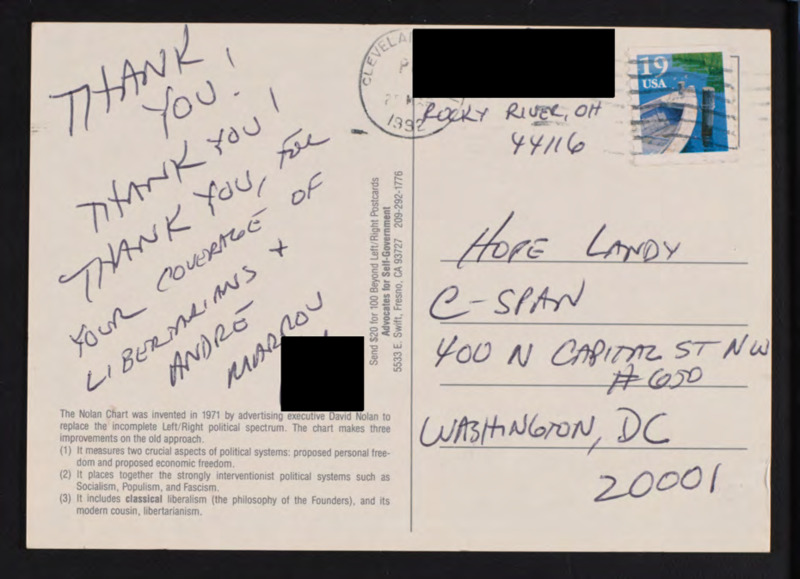 THANK
YOU!
THANK YOU!
THANK YOU, FOR
YOUR COVERAGE OF
LIBERTARIANS +
ANDRÉ
MARROU
The Nolan Chart was invented in 1971 by advertising executive David Nolan to
replace the incomplete Left/Right political spectrum. The chart makes three
improvements on the old approach.
(1) It measures two crucial aspects of political systems: proposed personal free-
dom and proposed economic freedom.
(2) It places together the strongly interventionist political systems such as
Socialism, Populism, and Fascism.
(3) It includes classical liberalism (the philosophy of the Founders), and its
modern cousin, libertarianism.
Send $20 for 100 Beyond Left/Right Postcards
Advocates for Self-Government
5533 E. Swift, Fresno, CA 93727 209-292-1776
1992
ROCKY RIVER, OH
44116
19
USA
HOPE LANDY
C-SPAN
400 N CAPITAL ST NW
#650
WASHINGTON, DC
20001